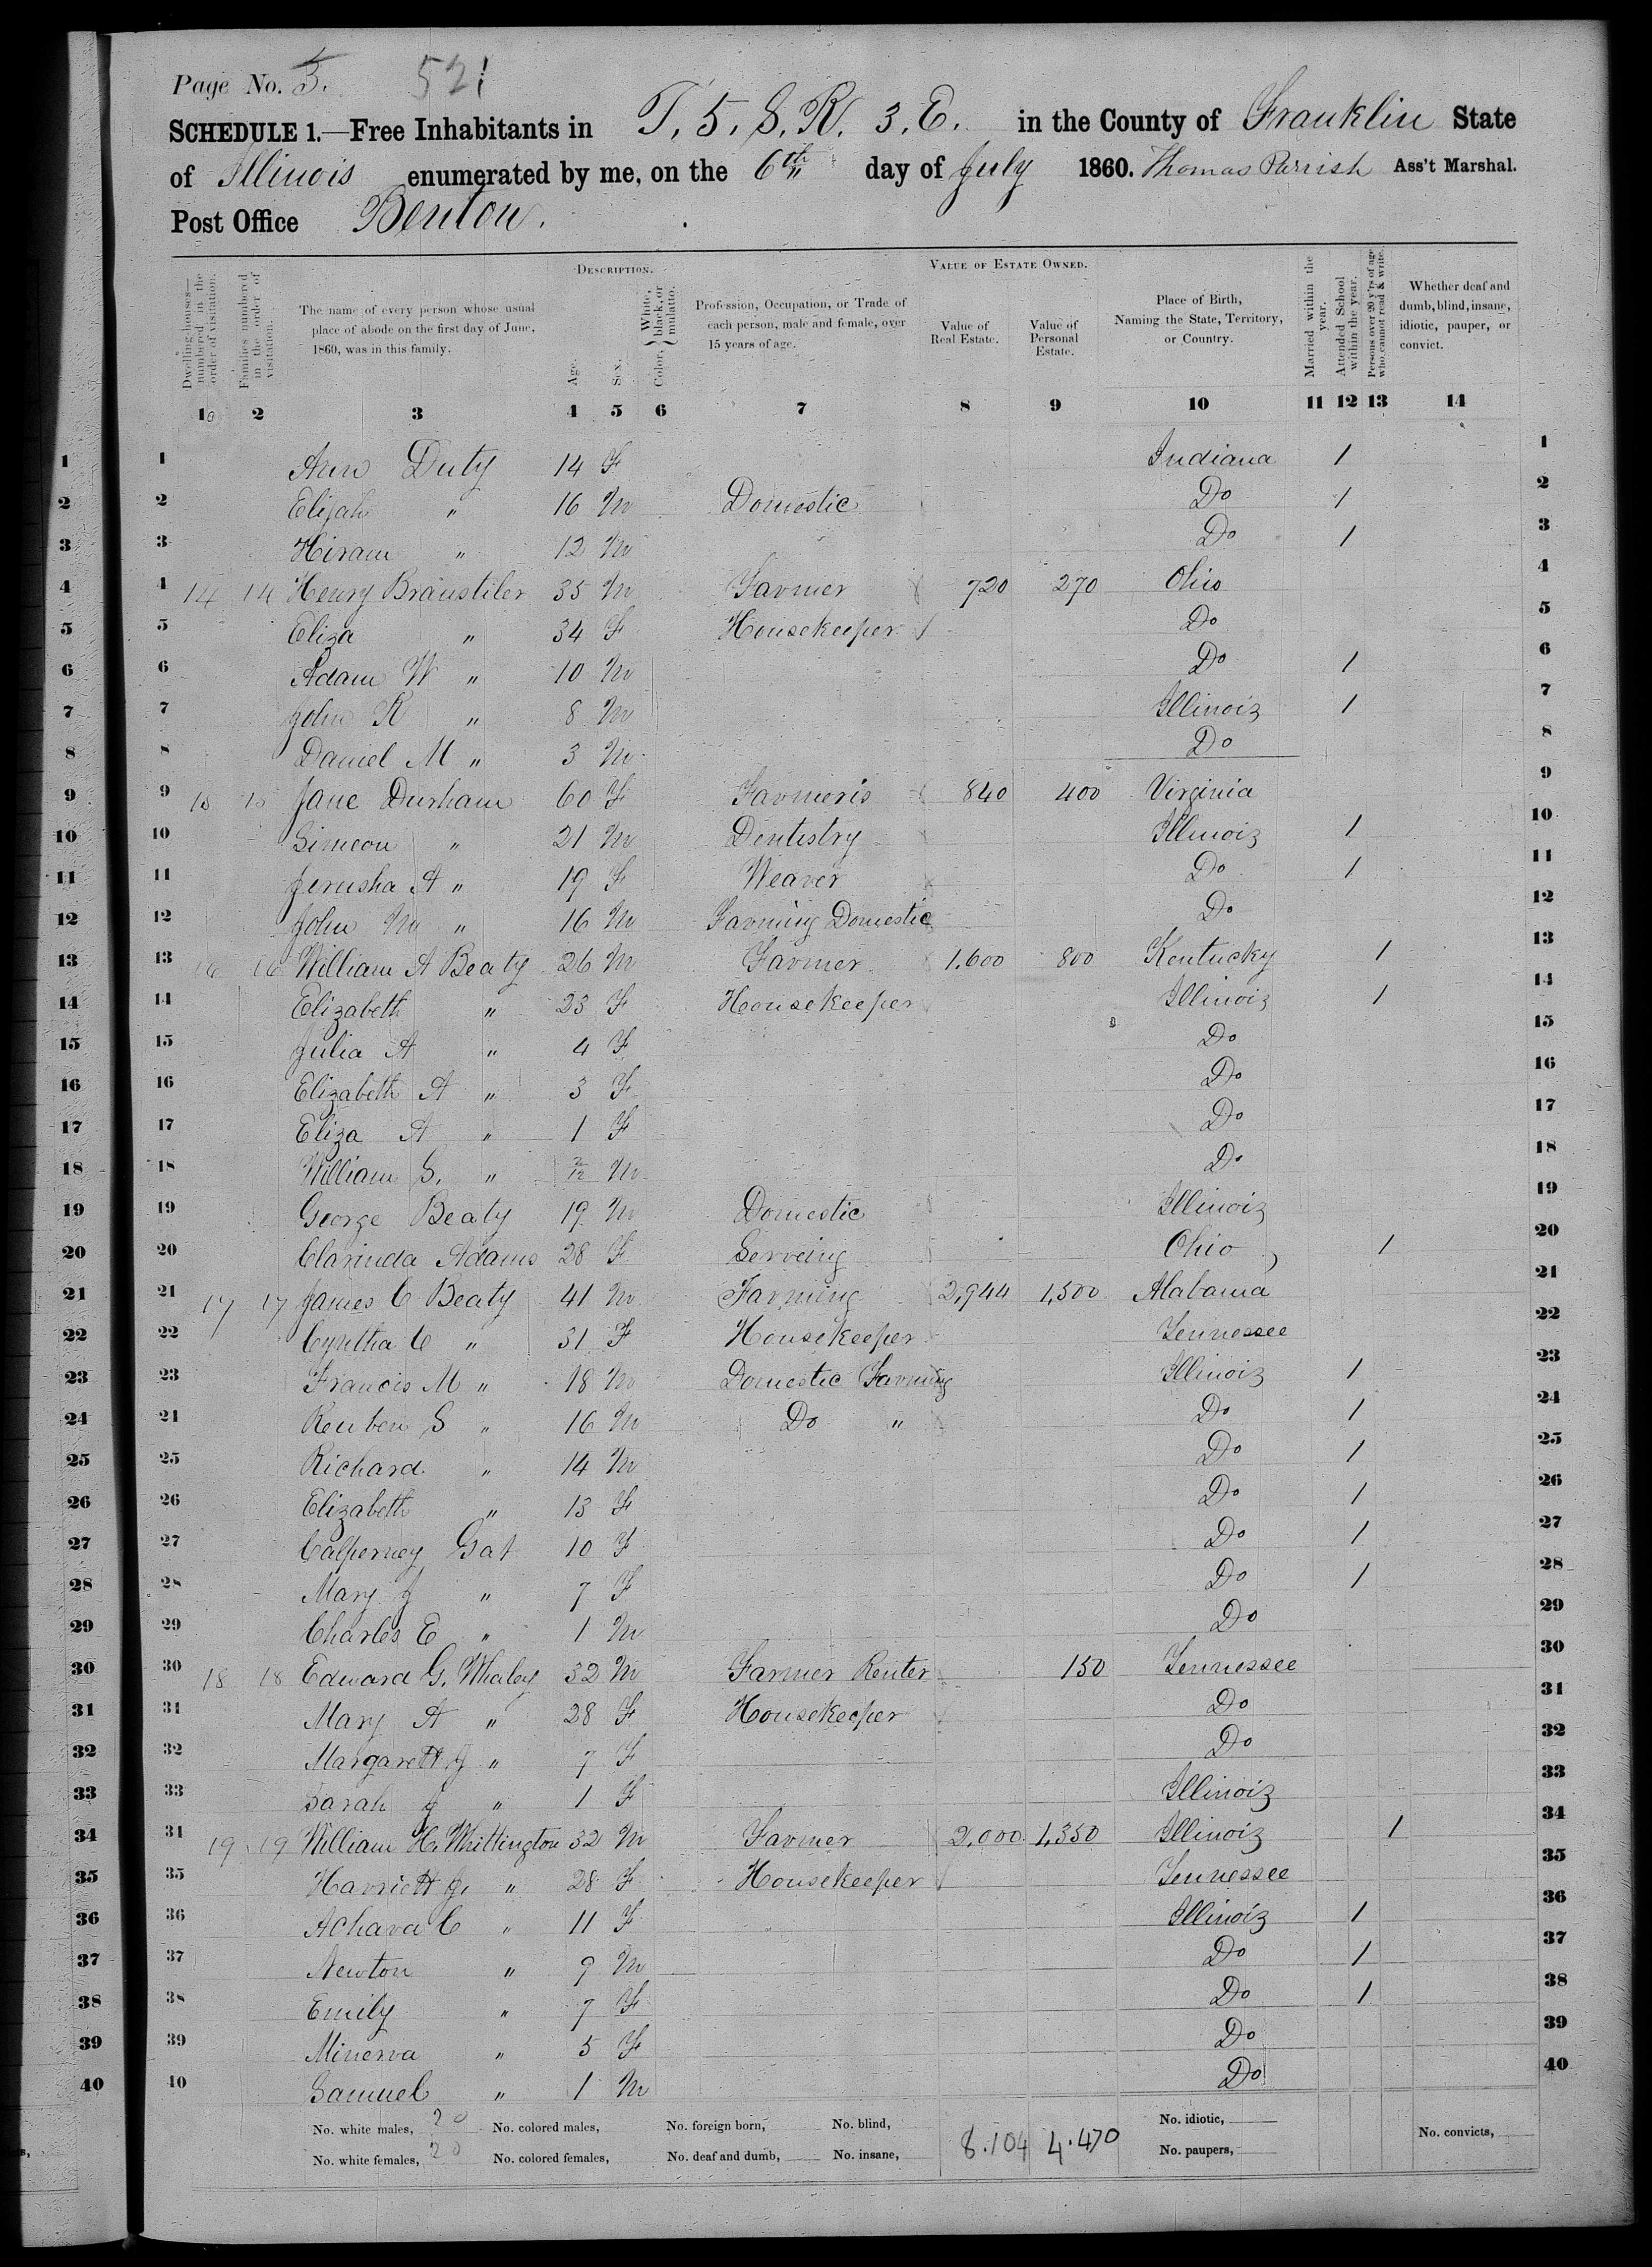 Page No. 5. 521
SCHEDULE 1.—Free Inhabitants in T. 5. S. R. 3. E. in the County of Franklin State
of Illinois enumerated by me, on the 6th day of July 1860. Thomas Parrish Ass't Marshal.
Post Office Benton.
DESCRIPTION. VALUE OF ESTATE OWNED.
Dwelling-houses—numbered in the order of visitation.
Families numbered in the order of visitation.
The name of every person whose usual place of abode on the first day of June, 1860, was in this family.
Age.
Sex.
Color, White, black, or mulatto.
Profession, Occupation, or Trade of each person, male and female, over 15 years of age.
Value of Real Estate.
Value of Personal Estate.
Place of Birth, Naming the State, Territory, or Country.
Married within the year.
Attended School within the year.
Persons over 20 y'rs of age who cannot read & write.
Whether deaf and dumb, blind, insane, idiotic, pauper, or convict.
1 2 3 4 5 6 7 8 9 10 11 12 13 14
1 1 Ann Duty 14 F Indiana 1 1
2 2 Elijah " 16 M Domestic Do 1 2
3 3 Hiram " 12 M Do 1 3
4 4 14 14 Henry Braustiler 35 M Farmer 720 270 Ohio 4
5 5 Eliza " 34 F Housekeeper Do 5
6 6 Adam W " 10 M Do 1 6
7 7 John R " 8 M Illinois 1 7
8 8 Daniel M " 3 M Do 8
9 9 15 15 Jane Durham 60 F Farmeris 840 400 Virginia 9
10 10 Simeon " 21 M Dentistry Illinois 1 10
11 11 Jerusha A " 19 F Weaver Do 1 11
12 12 John M " 16 M Farming Domestic Do 12
13 13 16 16 William A Beaty 26 M Farmer 1,600 800 Kentucky 1 13
14 14 Elizabeth " 23 F Housekeeper Illinois 1 14
15 15 Julia A " 4 F Do 15
16 16 Elizabeth A " 3 F Do 16
17 17 Eliza A " 1 F Do 17
18 18 William S. " 2/12 M Do 18
19 19 George Beaty 19 M Domestic Illinois 19
20 20 Clarinda Adams 28 F Serveing Ohio 1 20
21 21 17 17 James C Beaty 41 M Farming 2,944 1,500 Alabama 21
22 22 Cyntha C " 31 F Housekeeper Tennessee 22
23 23 Francis M " 18 M Domestic Farming Illinois 1 23
24 24 Reuben S " 16 M Do " Do 1 24
25 25 Richard " 14 M Do 1 25
26 26 Elizabeth " 13 F Do 1 26
27 27 Calperney Gat 10 F Do 1 27
28 28 Mary J " 7 F Do 1 28
29 29 Charles E " 1 M Do 29
30 30 18 18 Edward G. Whaley 32 M Farmer Renter 150 Tennessee 30
31 31 Mary A " 28 F Housekeeper Do 31
32 32 Margarett J " 7 F Do 32
33 33 Sarah J " 1 F Illinois 33
34 34 19 19 William H. Whittington 32 M Farmer 2,000 1,350 Illinois 1 34
35 35 Harriett J. " 28 F Housekeeper Tennessee 35
36 36 Achava C " 11 F Illinois 1 36
37 37 Newton " 9 M Do 1 37
38 38 Emily " 7 F Do 1 38
39 39 Minerva " 5 F Do 39
40 40 Samuel " 1 M Do 40
No. white males, 20 No. colored males, No. foreign born, No. blind, 8.104 4.470 No. idiotic, No. convicts,
No. white females, 20 No. colored females, No. deaf and dumb, No. insane, No. paupers,